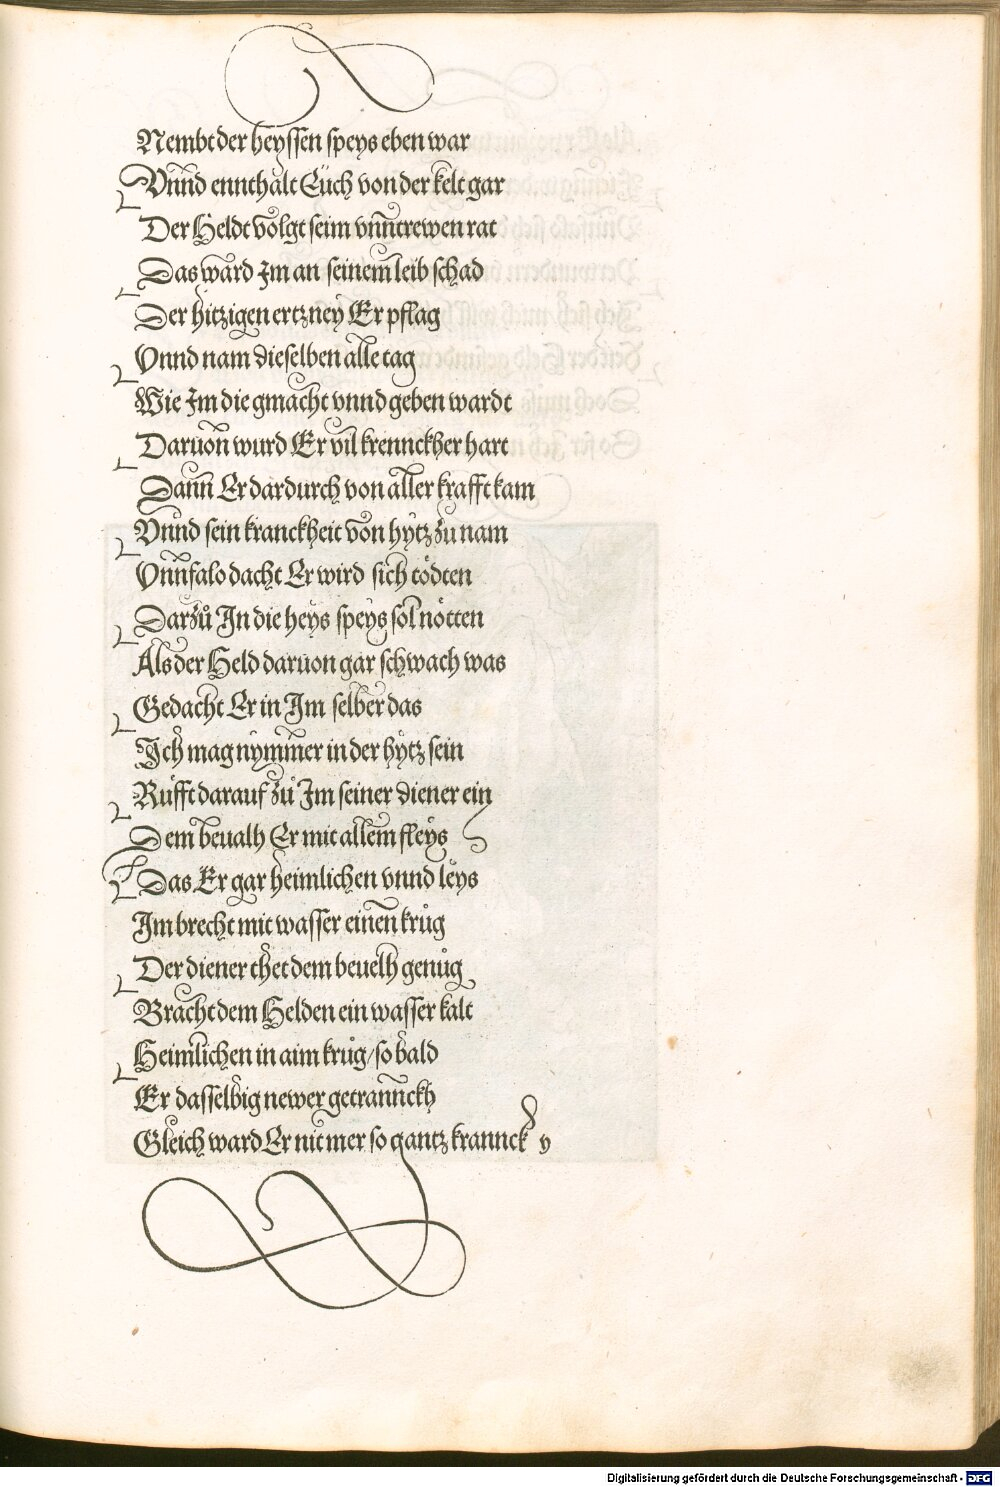 Nembt der heyssen speys eben war
Vnnd ennthalt Eüch von der kelt gar
Der Heldt volgt seim vnntrewen rat
Das ward Im an seinem leib schad
Der hitzigen ertzney Er pflag
Vnnd nam dieselben alle tag
Wie Im die gmacht vnnd geben wardt
Daruon wurd Er vil krennckher hart
Dann Er dardurch von aller krafft kam
Vnnd sein kranckheit von hytz zu nam
Vnnfalo dacht Er wird sich tödten
Darzů In die heys speys sol nötten
Als der Held daruon gar schwach was
Gedacht Er in Im selber das
Ich mag nymmer in der hytz sein
Růfft darauf zů Im seiner diener ein
Dem beualh Er mit allem fleys
Das Er gar heimlichen vnnd leys
Im brecht mit wasser einen krůg
Der diener thet dem beuelh genůg
Bracht dem Helden ein wasser kalt
Heimlichen in aim krůg/so bald
Er dasselbig newer getrannckh
Gleich ward Er nit mer so gantz kranck
y
Digitalisierung gefördert durch die Deutsche Forschungsgemeinschaft - DFG